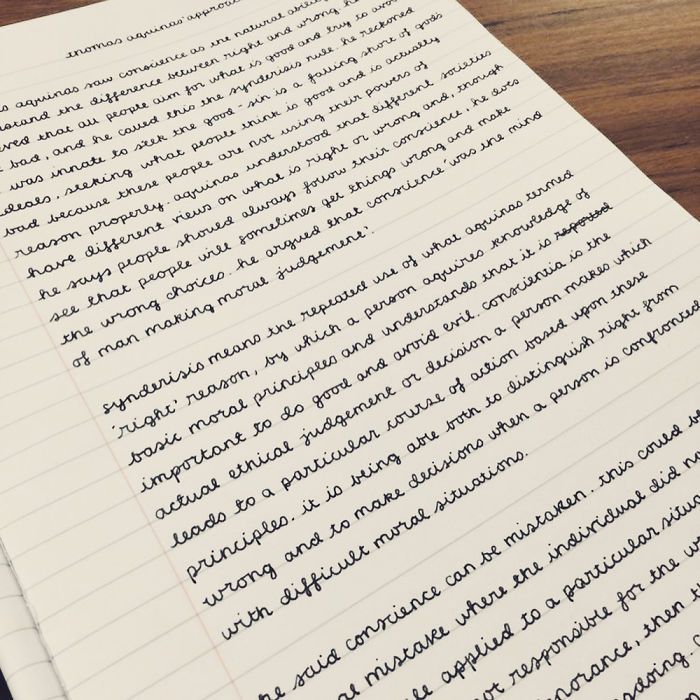 thomas aquinas' approa
aquinas saw conscience as the natural
the difference between right and wrong. he
that all people aim for what is good and try to avo
bad, and he called this the synderisis rule. he reckoned
was innate to seek the good - sin is a falling short of gods
ideals, seeking what people think is good and is actually
bad because these people are not using their powers of
reason properly. aquinas understood that different societies
have different views on what is right or wrong and, though
he says people should always follow their conscience, he does
see that people will sometimes get things wrong and make
the wrong choices. he argued that conscience 'was the mind
of man making moral judgement'.
synderisis means the repeated use of what aquinas termed
'right' reason, by which a person aquires knowledge of
basic moral principles and understands that it is
important to do good and avoid evil. conscientia is the
actual ethical judgement or decision a person makes which
leads to a particular course of action based upon these
principles. it is being able both to distinguish right from
wrong and to make decisions when a person is confronted
with difficult moral situations.
he said conscience can be mistaken. this could b
mistake where the individual did n
applied to a particular situa
not responsible for the w
ignorance, then t
doing.